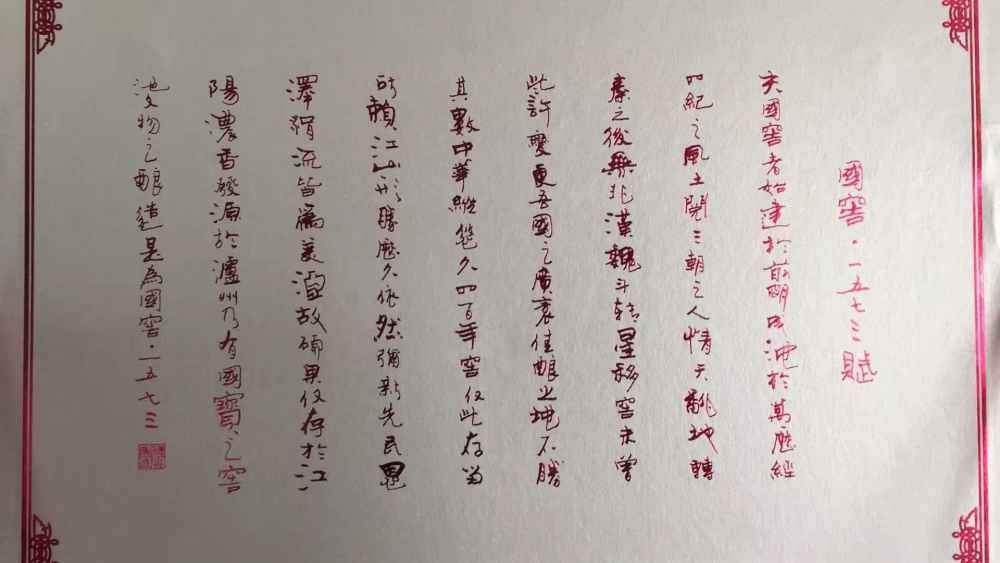 國窖·一五七三賦
夫國窖者始建於前明成池於萬歷經
四紀之風土閱三朝之人情天翻地轉
秦之後無非漢魏斗轉星移窖未曾
些許變更吾國之廣袤佳釀之地不勝
其數中華縱篼久四百年窖仅此存当
時賴江山形勝歷久依然彌新先民恩
澤涓流皆為美酒故碩果仅存於江
陽濃香發源於瀘州乃有國寶之窖
池文物之釀造是為國窖·一五七三